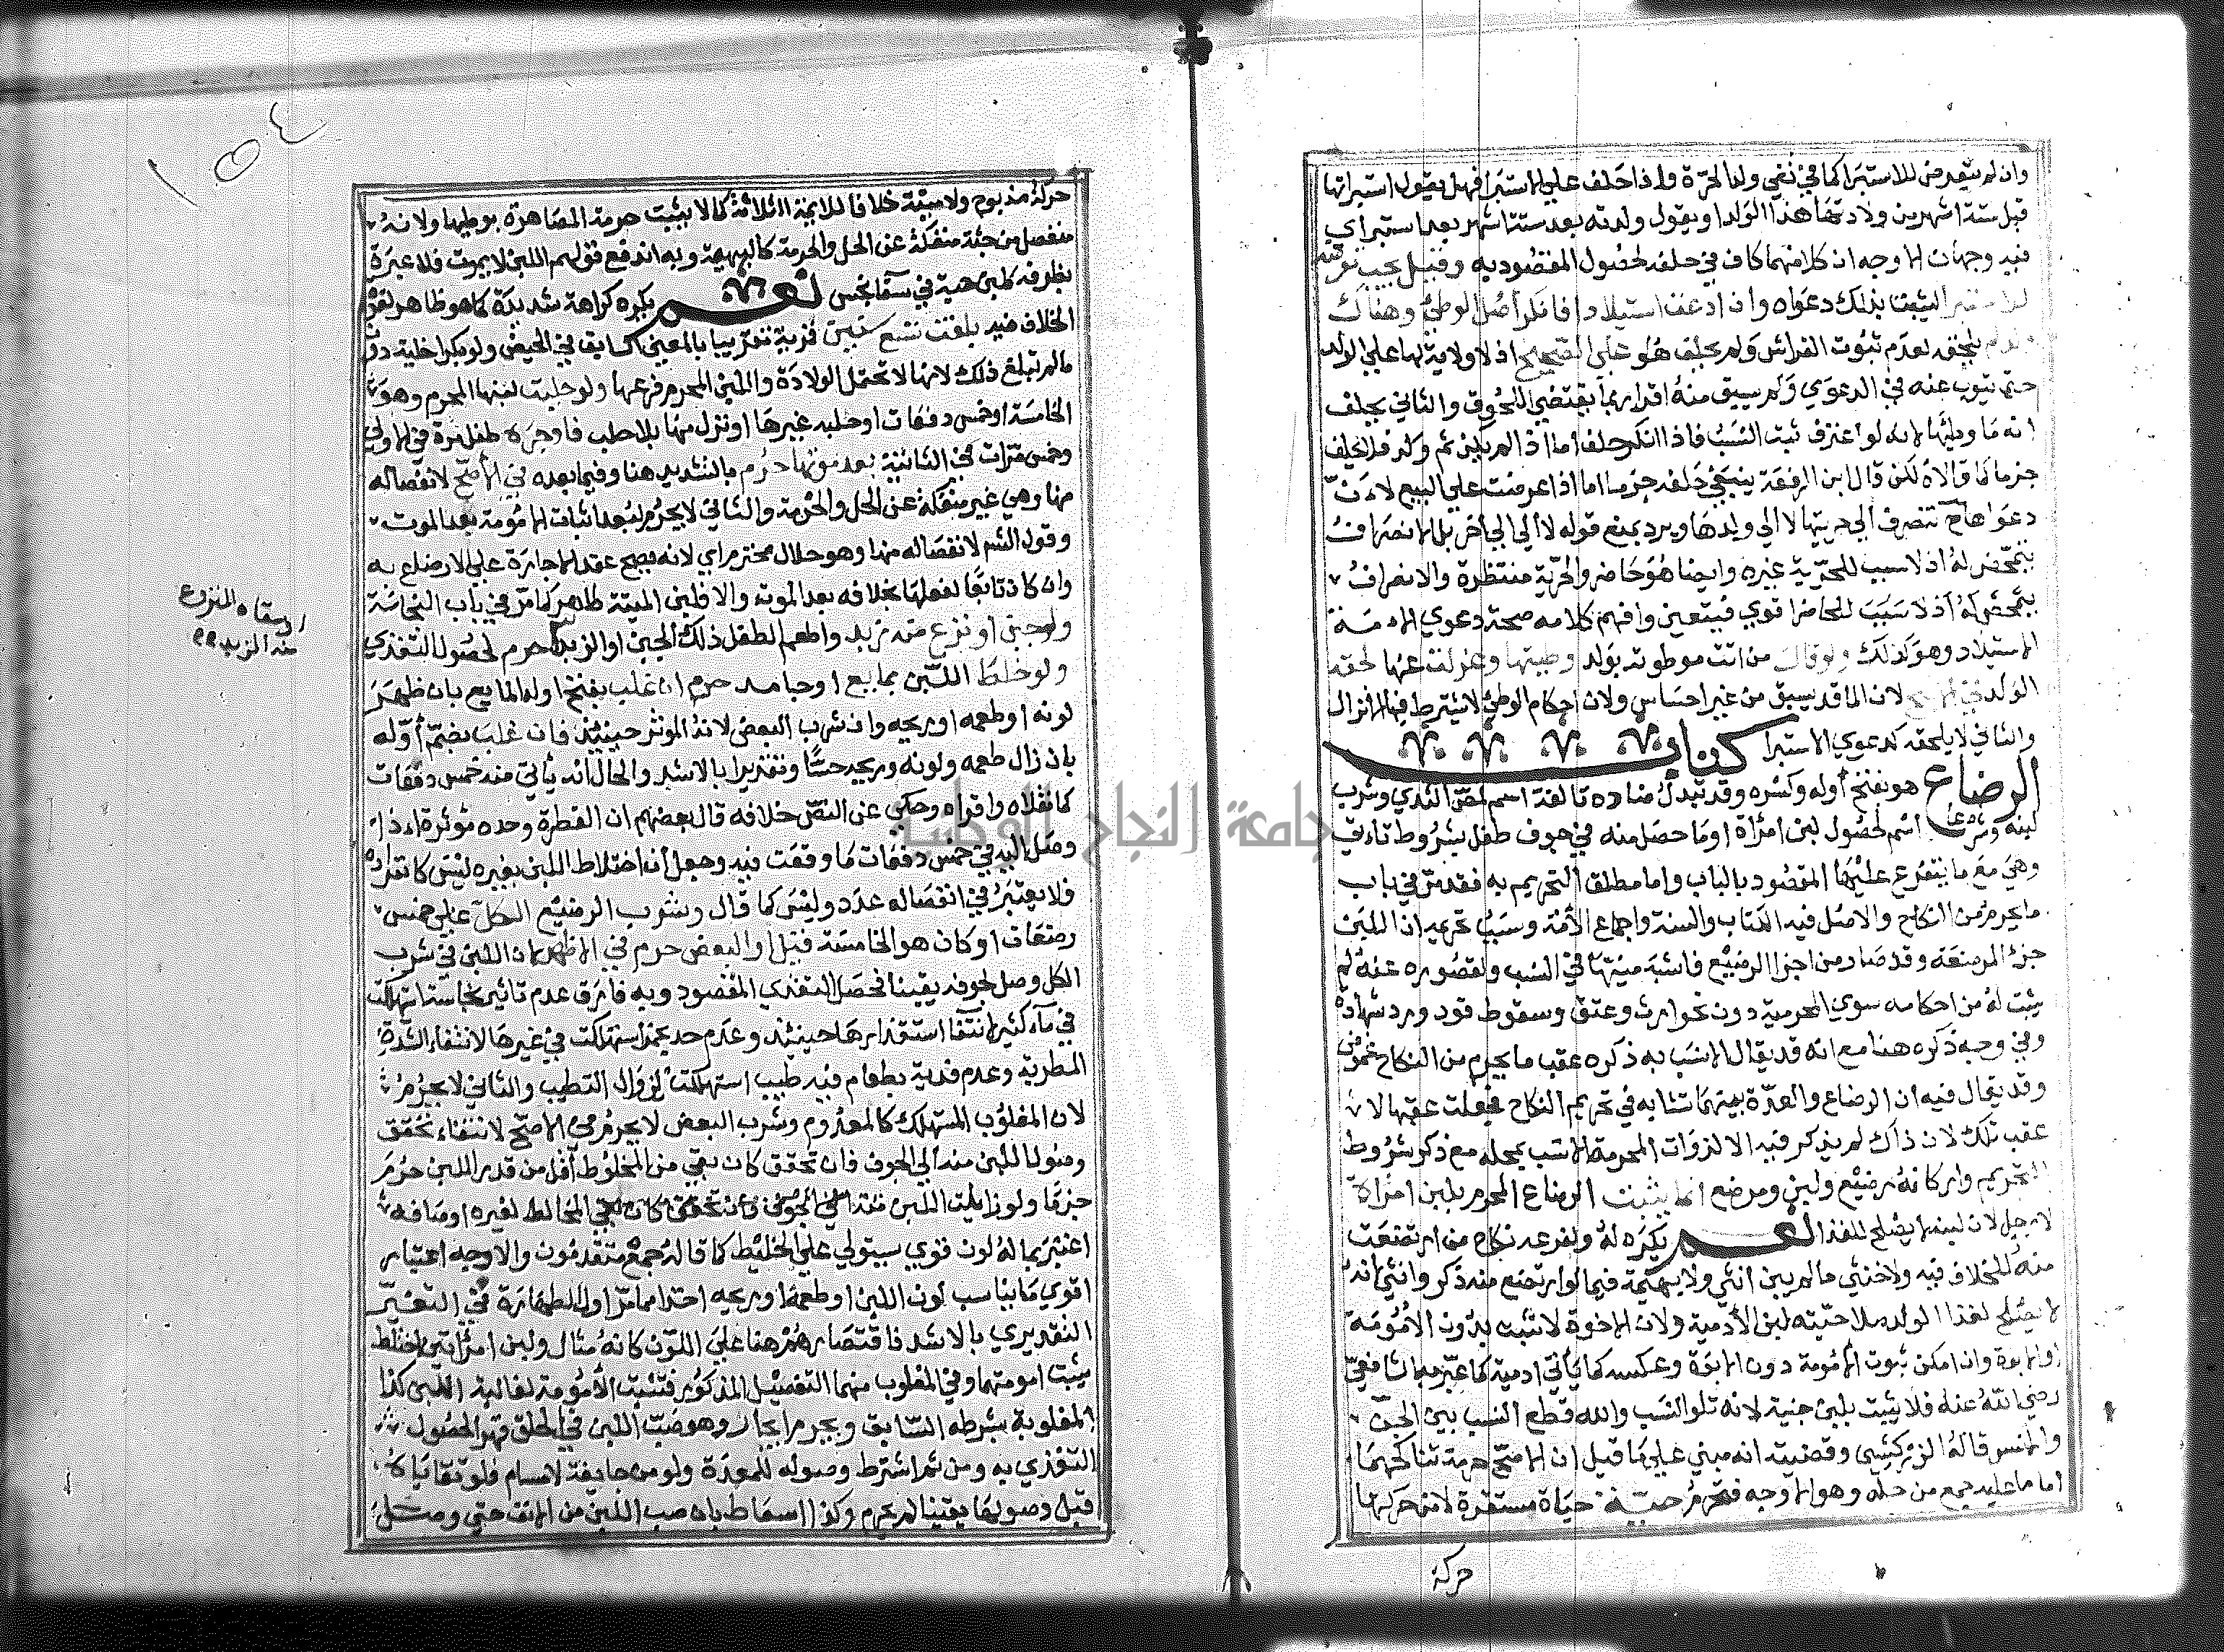 وان لم يتعرض للاستبرا كما في نفي ولد الحرة واذا حلف علي الاستبرا فهل يقول استبراتها
قبل ستة اشهر من ولادتها هذا الولد او يقول ولدته بعد ستة اشهر بعد استبراي
فيه وجهان الاوجه ان كلا منهما كاف في حلفه لحصول المقصود به وقيل يجب تعرضه
بذلك دعواه وان ادعت استيلادا فانكر اصل الوطئ وهناك
لعدم ثبوت الفراش ولم يحلف هو علي الصحيح اذ لا ولاية لها علي الولد
حتي تنوب عنه في الدعوي ولم يسبق منه اقرار بما يقتضي اللحوق والثاني يحلف
انه ما وطئها لانه لو اعترف ثبت النسب فاذا انكر حلف اما اذا لم يكن ثم ولد فلا يحلف
جزما كما قالاه لكن قال ابن الرفعة ينبغي حلفه جزما اما اذا عرضت علي البيع لان
دعواها ح تنصرف الي حريتها لا الي ولدها ويرد بمنع قوله لا الي الي اخر بل الانصراف
يتمحض له اذ لا سبب للحرية غيره وايضا هو حاضر والحرية منتظرة والانصراف
يتمحض له اذ لا سبب للحاضر اقوي فيتعين وافهم كلامه صحة دعوي الامة
الاستيلاد وهو كذلك ولو قال من اتت موطوته بولد وطيتها وعزلت عنها لحقه
الولد في الاصح لان الما قد يسبق من غير احساس ولان احكام الوطئ لا يشترط فيها الانزال
والثاني لا يلحقه كدعوي الاستبرا كتاب
الرضاع هو بفتح اوله وكسره وقد تبدل ضاده تا لغة اسم لمص الثدي وشرب
لبنه وشرعا اسم لحصول لبن امراة او ما حصل منه في جوف طفل بشروط تاتي
وهي مع ما يتفرع عليها المقصود بالباب واما مطلق التحريم به فقد مر في باب
ما يحرم من النكاح والاصل فيه الكتاب والسنة واجماع الامة وسبب تحريمه ان اللبن
جزء المرضعة وقد صار من اجزا الرضيع فاشبه منيها في النسب ولقصوره عنه لم
يثبت له من احكامه سوي المحرمية دون نحو ارث وعتق وسقوط قود ورد شهادة
وفي وجه ذكره هنا مع انه قد يقال الانسب به ذكره عقب ما يحرم من النكاح غموض
وقد يقال فيه ان الرضاع والعدة بينهما تشابه في تحريم النكاح فجعلت عقبها لا
عقب تلك لان ذاك لم يذكر فيه الا الذوات المحرمة الانسب بمحله مع ذكر شروط
التحريم واركانه رضيع ولبن ومرضع انما يثبت الرضاع المحرم بلبن امراة
لا رجل لان لبنه لا يصلح للغذا نعم يكره له ولفرعه نكاح من ارتضعت
منه للخلاف فيه ولا خنثي ما لم يبن انثي ولا بهيمة فيما لو ارتضع منه ذكر وانثي لانه
لا يصلح لغذا الولد صلاحية لبن الآدمية ولان الاخوة لا تثبت بدون الامومة
او الابوة وان امكن ثبوت الامومة دون الابوة وعكسه كما ياتي ادمية كما عبر به الشافعي
رضي الله عنه فلا يثبت بلبن جنية لانه تلو النسب والله قطع النسب بين الجن
والانس قاله الزركشي وقضيته انه مبني علي ما قيل ان الاصح حرمة تناكحهما
اما ما عليه جمع من حله وهو الاوجه فتحرم حية حياة مستقرة لا من حركتها
حركة
حركة مذبوح ولا ميتة خلافا للايمة الثلاثة كما لا يثبت حرمة المصاهرة بوطيها ولانه
منفصل من جثة منفكة عن الحل والحرمة كالبهيمة وبه اندفع قولهم اللبن لا يموت فلا عبرة
بظرفه كلبن حية في سقا نجس نعم يكره كراهة شديدة كما هو ظاهر لقوة
الخلاف فيه بلغت تسع سنين قمرية تقريبا بالمعني السابق في الحيض ولو بكرا خلية دون
ما لم تبلغ ذلك لانها لا تحتمل الولادة واللبن المحرم فرعها ولو حلبت لبنها المحرم وهو
الخامسة او خمس دفعات او حلبه غيرها او نزل منها بلا حلب فاوجره طفل مرة في الاولي
وخمس مرات في الثانية بعد موتها حرم بالتشديد هنا وفيما بعده في الاصح لانفصاله
منها وهي غير منفكة عن الحل والحرمة والثاني لا يحرم لبعد اثبات الامومة بعد الموت
وقول الشم لانفصاله منها وهو حلال محترم اي لانه يصح عقد الاجارة علي الارضاع به
وان كان تابعا لفعلها بخلافه بعد الموت والا فلبن الميتة طاهر كما مر في باب النجاسة
ولو جبن او نزع منه زبد واطعم الطفل ذلك الجبن او الزبد حرم لحصول التغذي
ولو خلط اللبن بمايع او جامد حرم ان غلب بفتح اوله المايع بان ظهر
لونه او طعمه او ريحه وان شرب البعض لانه الموثر حينيذ فان غلب بضم اوله
بان زال طعمه ولونه وريحه حسا وتقديرا بالاشد والحال انه ياتي منه خمس دفعات
كما نقلاه واقراه وحكي عن النص خلافه قال بعضهم ان القطرة وحده موثرة اذا
وصل اليه في خمس دفعات ما وقعت فيه وجعل ان اختلاط اللبن بغيره ليس كانفراده
فلا يعتبر في انفصاله عدد وليس كما قال وشرب الرضيع الكل علي خمس
رضعات او كان هو الخامسة قيل او البعض حرم في الاظهر لان اللبن في شرب
الكل وصل لجوفه يقينا فحصل التغذي المقصود وبه فارق عدم تاثير نجاسة استهلكت
في ماء كثير لانتفا استقذارها حينيذ وعدم حد بخمر استهلكت في غيرها لانتفاء الشدة
المطربة وعدم فدية بطعام فيه طيب استهلكت لزوال التطيب والثاني لا يحرم
لان المغلوب المستهلك كالمعدوم وشرب البعض لا يحرم في الاصح لانتفاء تحقق
وصول اللبن منه الي الجوف فان تحقق كان بقي من المخلوط اقل من قدر اللبن حرم
جزما ولو زايلت اللبن المخالط لغيره اوصافه
اعتبر بما له لون قوي يستولي علي الخليط كما قاله جمع متقدمون والاوجه اعتبار
اقوي ما يناسب لون اللبن او طعمه او ريحه اخذا مما مر اول الطهارة في التغير
التقديري بالاشد فاقتصارهم هنا علي اللون كانه مثال ولبن امراتين اختلط
يثبت امومتهما وفي المغلوب منهما التفصيل المذكور فتثبت الامومة لغالبة اللبن كذا
المغلوبة بشرطه السابق ويحرم ايجار وهو صب اللبن في الحلق قهرا لحصول
التغذي به ومن ثم اشترط وصوله للمعدة ولو من جايفة لا مسام فلو تقاياه
قبل وصولها يقينا لم يحرم وكذا اسعاط بان صب اللبن من الانف حتي وصل
او سقاه المنزوع
منه الزبد
١٥٤
جامعة النجاح الوطنية